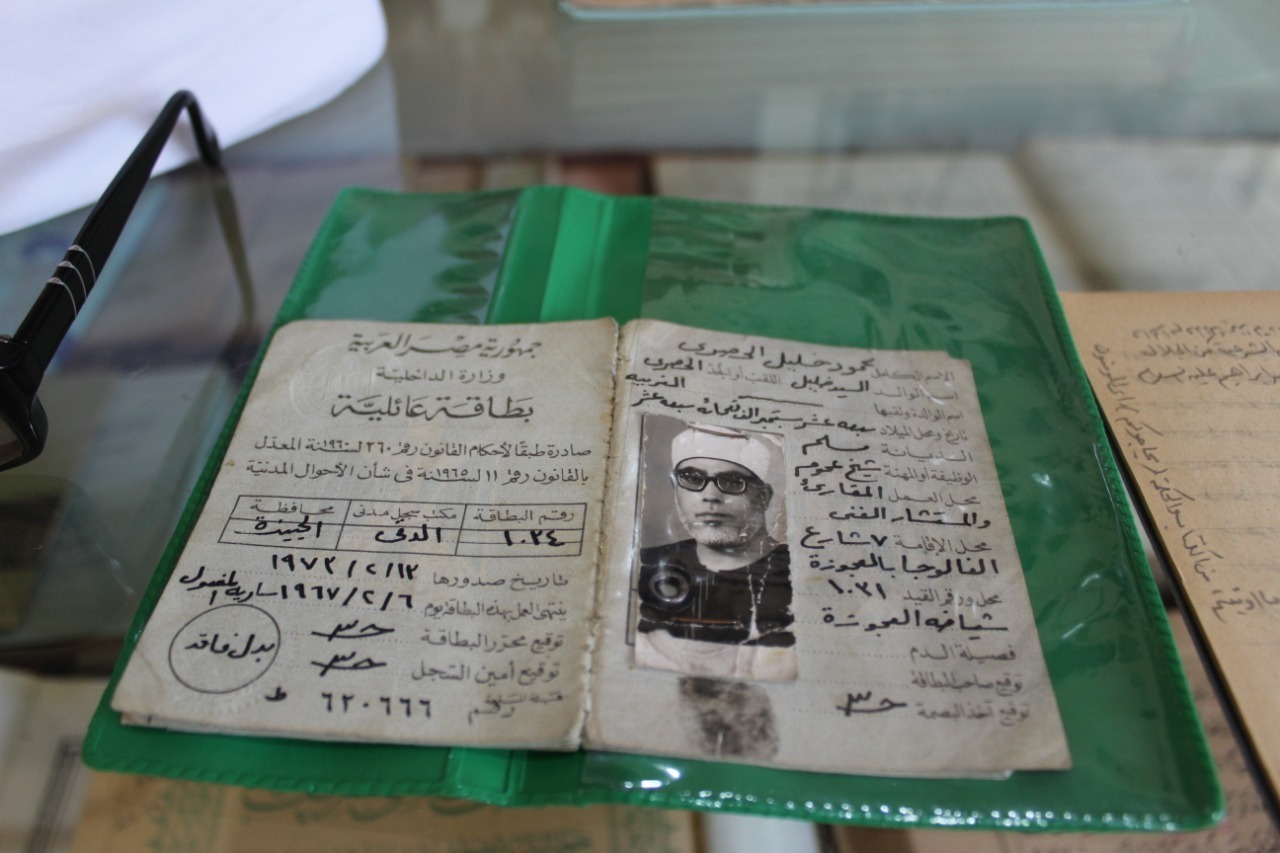 جمهورية مصر العربية
وزارة الداخلية
بطاقة عائلية
صادرة طبقا لأحكام القانون رقم ٢٦٠ لسنة ١٩٦٠ المعدل
بالقانون رقم ١١ لسنة ١٩٦٥ في شأن الأحوال المدنية
رقم البطاقة مكتب سجل مدنى محافظة
١٠٣٤ الدقى الجيزة
تاريخ صدورها ١٩٧٣/٢/١٣
ينتهى العمل بهذه البطاقة يوم ١٩٦٧/٢/٦ سارية المفعول
توقيع محرر البطاقة
توقيع أمين السجل
بدل فاقد
رقم ٦٢٠٦٦٦ ط
الاسم الكامل محمود خليل الحصرى
اسم الوالد السيد خليل اللقب أو الشهرة الحصرى
اسم الوالدة ولقبها
الغربية
تاريخ ومحل الميلاد سبعة عشر سبتمبر ألف تسعمائة سبعة عشر
الديانة مسلم
الوظيفة أو المهنة شيخ عموم
محل العمل المقارئ
والمستشار الفنى
محل الإقامة ٧ شارع
الفالوجا بالعجوزة
محل ورقم القيد ١٠٣١
شياخة العجوزة
فصيلة الدم
توقيع صاحب البطاقة
توقيع آخذ البصمة